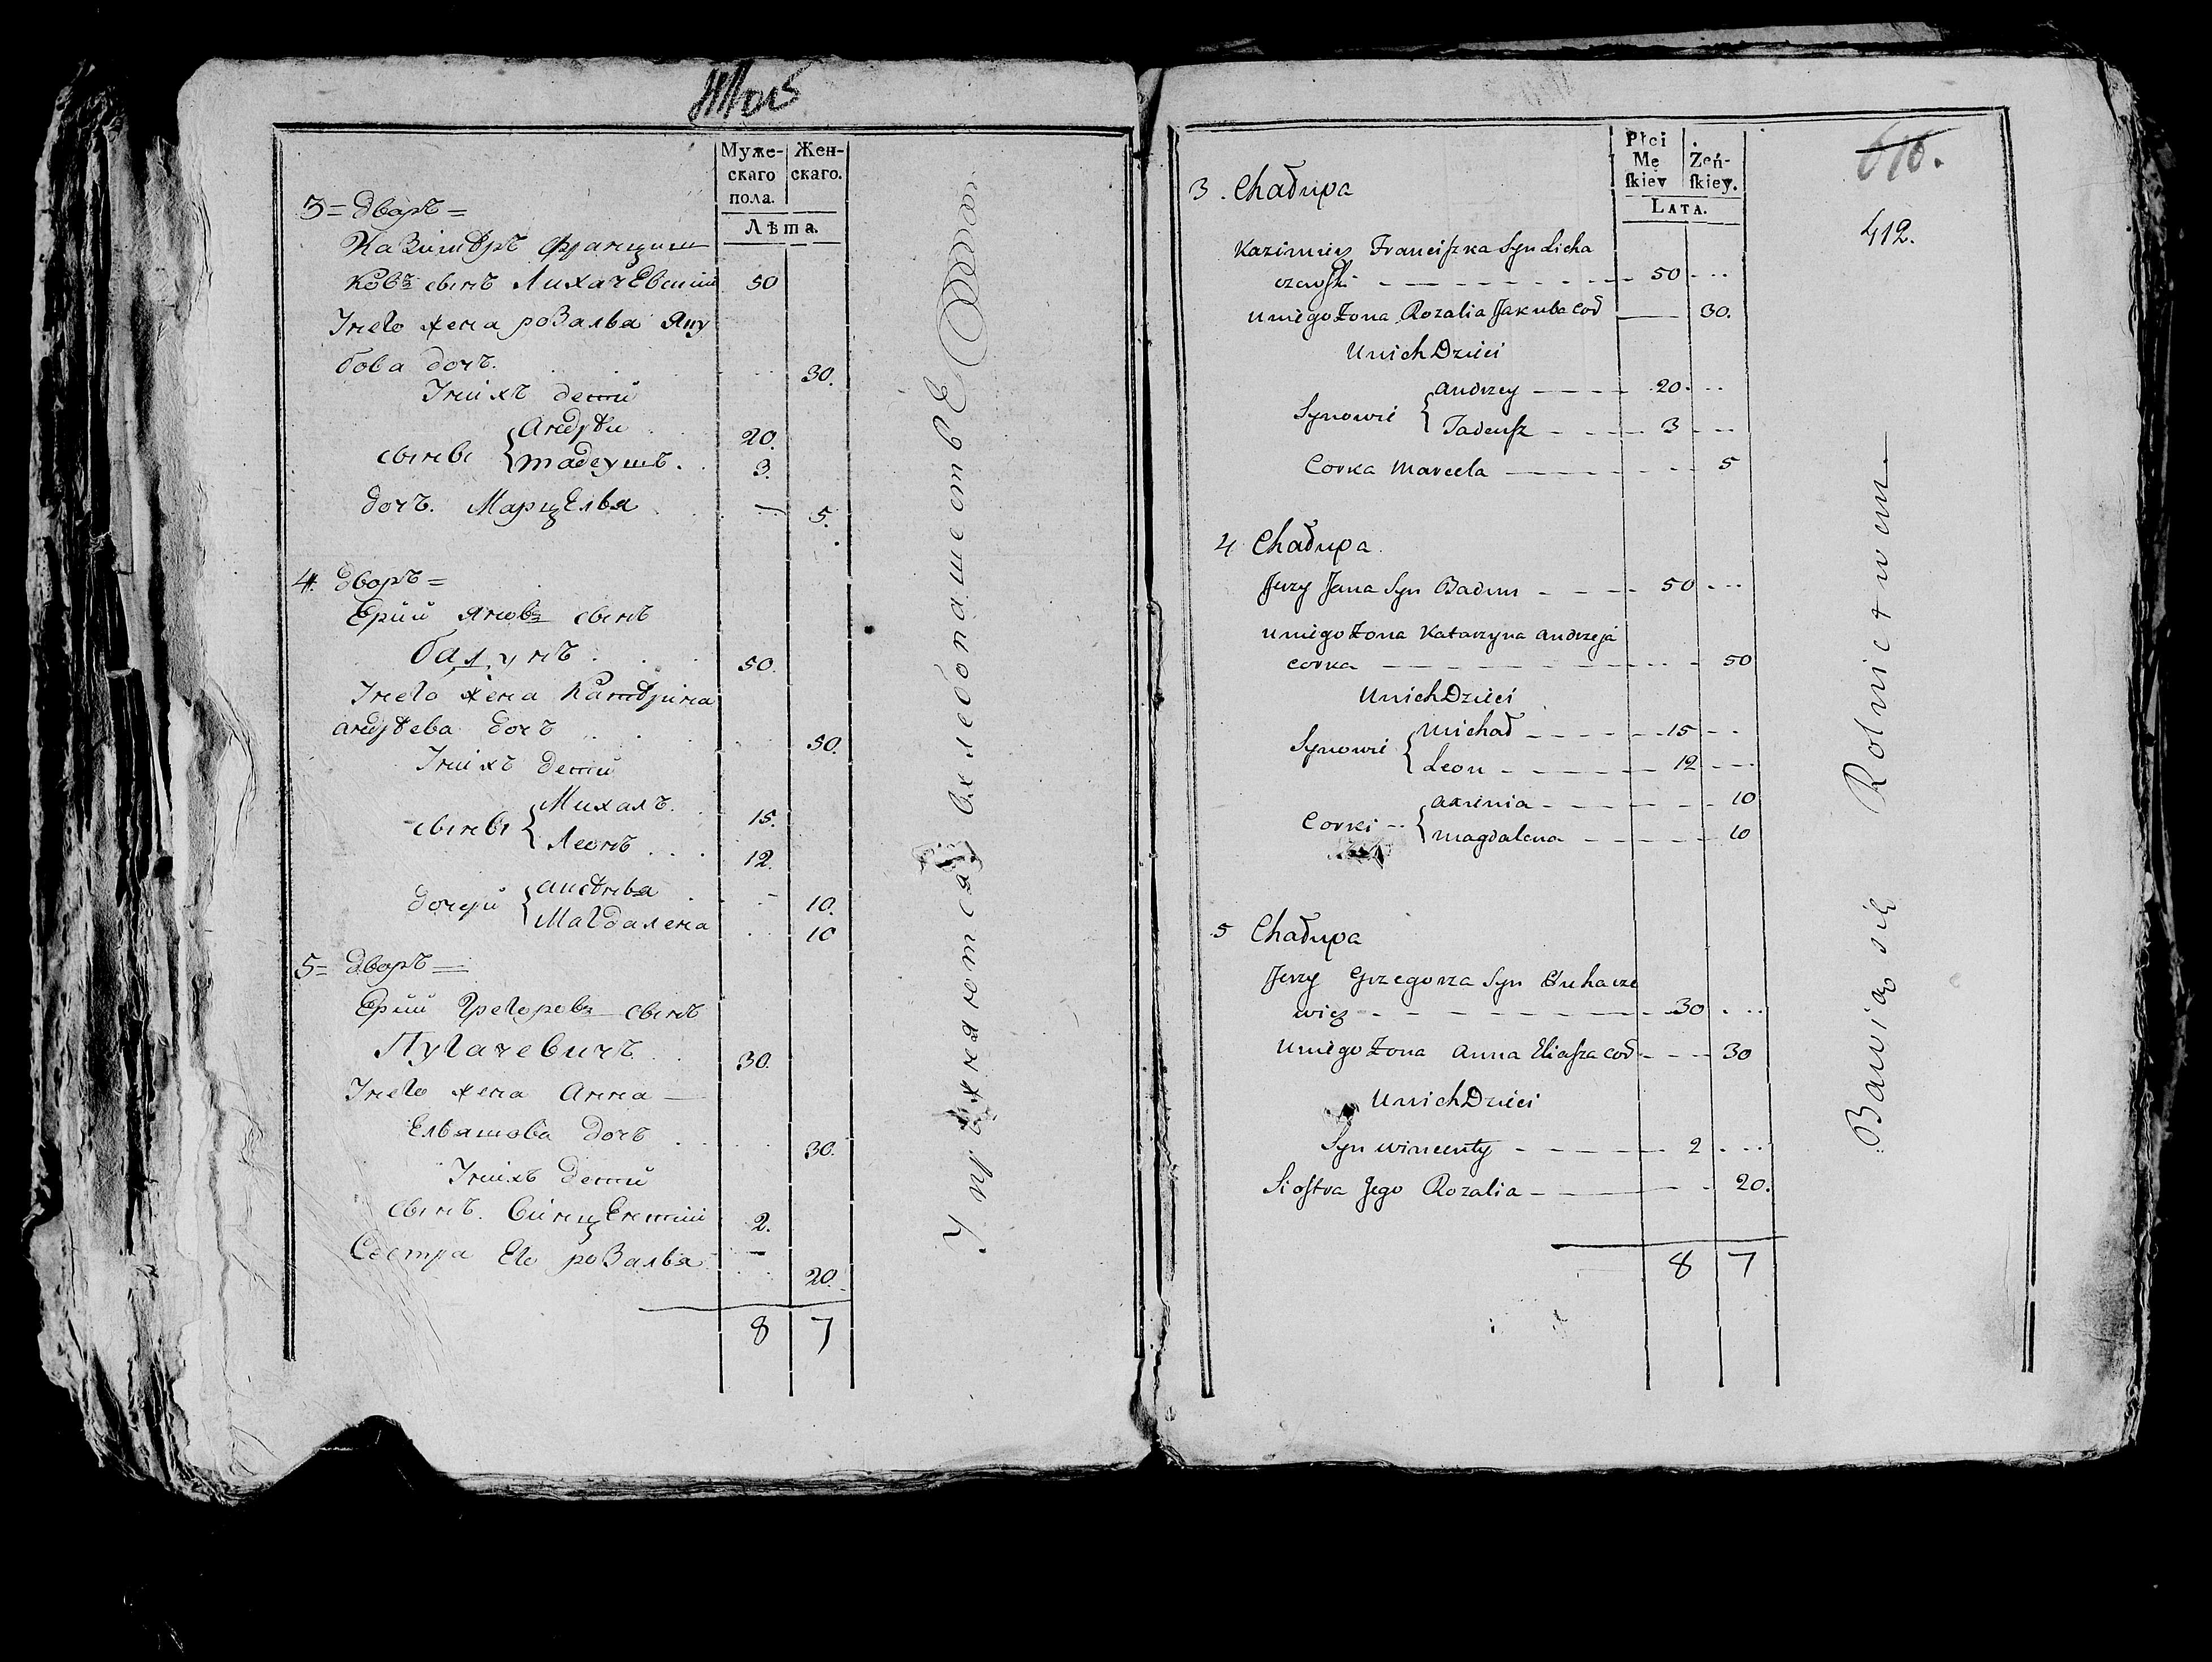 Муже-
скаго
пола.
Жен-
скаго.
Лѣта.
3= Дворъ=
Казимѣръ Францыш
ковъ сынъ Лихачевский 50
У него жена розалья Яку
бова дочъ. 30.
У них детей
сыны { Андрѣй 20.
тадеушъ. 3.
дочъ. Марцелья — 5.
4. Дворъ=
Ерий Яновъ сынъ
бадунъ 50.
У него жена Катѣрина
андрѣева дочъ 50.
У нихъ детей
сыны { Михалъ. 15.
Леонъ 12.
дочери { 10.
Магдалена 10
5= Дворъ=
Ерий Грегоровъ сынъ
Пугачевичъ 30.
У него жена Анна
Ельяшова дочъ 30.
У нихъ детей
Сынъ. Винцентий 2.
Сестра Его розалья — 20.
8 7
Упражняются в хлебопашестве
Płci
Mę
ſkiey
Zeń-
ſkiey.
LATA.
616.
412.
3. Chałupa
Kazimierz Franciſzka Syn Licha
czewſki 50
u niego Żona Rozalia Jakuba Coł 30.
U nich Dzieci
Synowie { Andrzey 20
Tadeuſz 3
Corka Marcela 5
4 Chałupa
Jerzy Jana Syn Badun 50
u niego Żona Katarzyna Andrzeja
corka 50
U nich Dzieci
Synowie { Michał 15
Leon 12
Corki { Axinia 10
Magdalena 10
5 Chałupa
Jerzy Grzegorza Syn
wicz 30
U niego Żona Anna Eliaſza coł 30
U nich Dzieci
Syn wincenty 2
Sioſtra Jego Rozalia 20.
8 7
Bawią się Rolnictwem